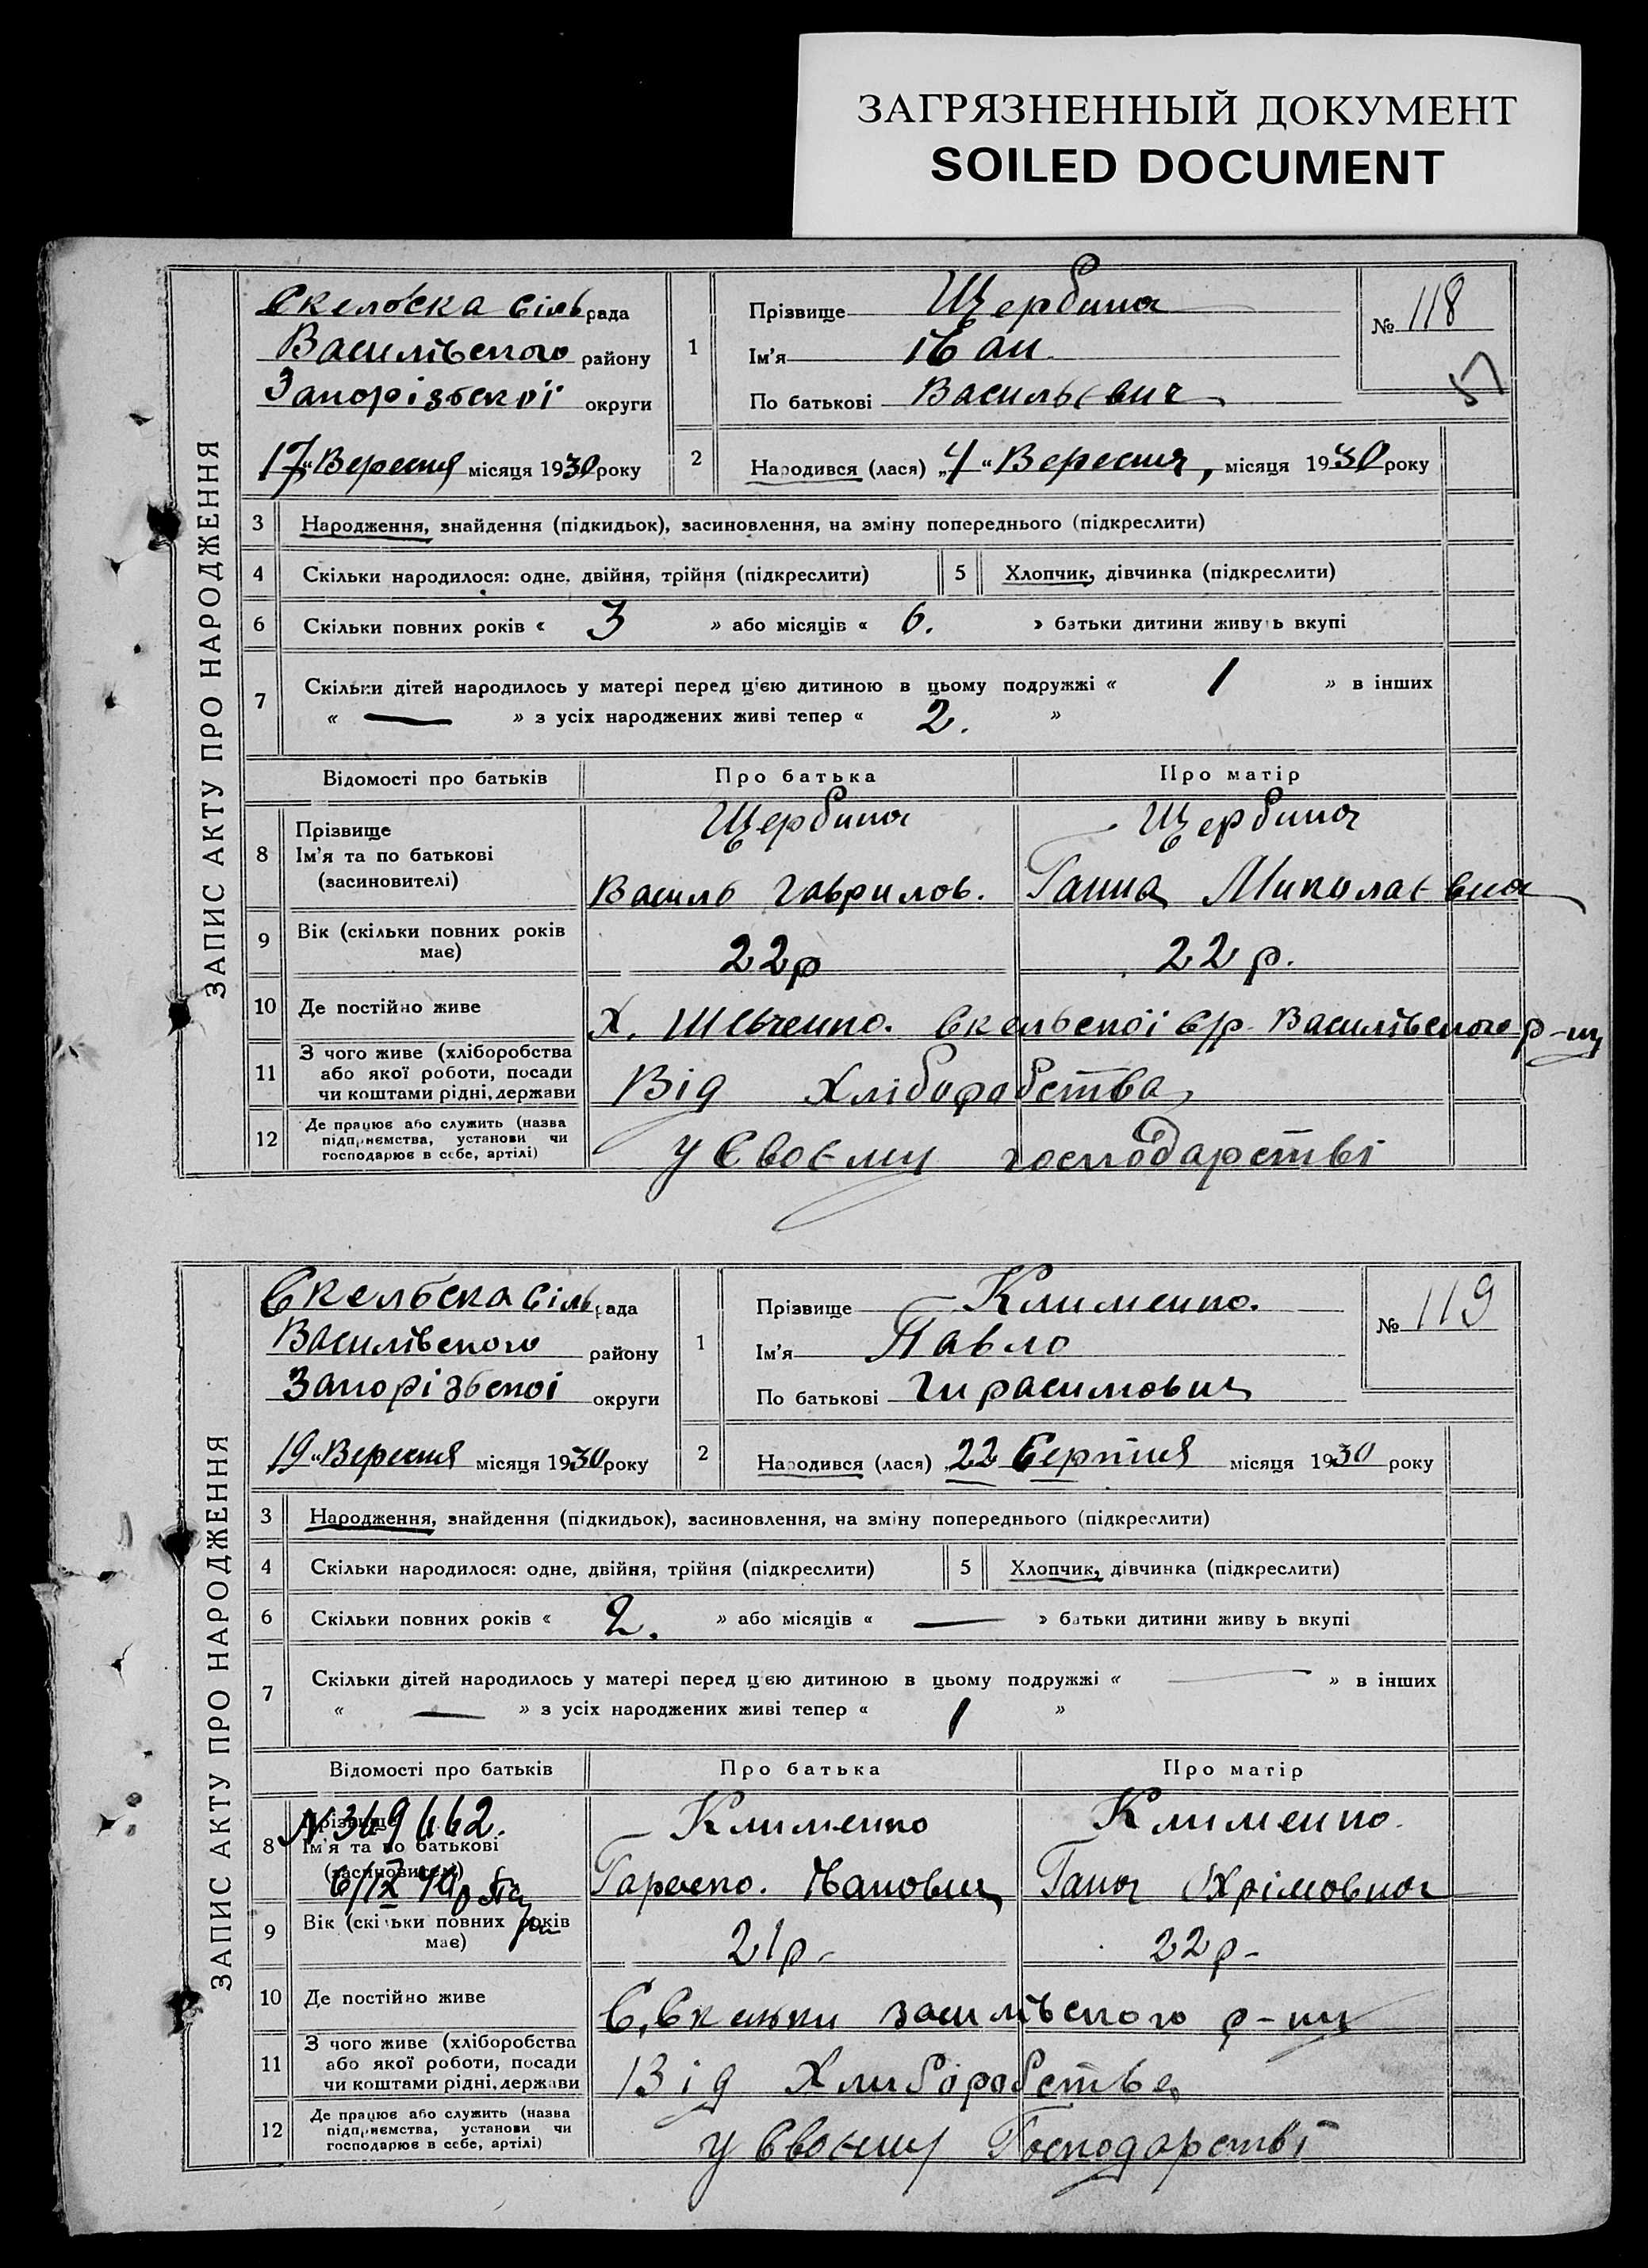 ЗАГРЯЗНЕННЫЙ ДОКУМЕНТ
SOILED DOCUMENT
ЗАПИС АКТУ ПРО НАРОДЖЕННЯ
Скельська сільрада
Василівського району
Запорізської округи
17 "Вересня місяця 1930 року
1
Прізвище Щербина
Ім'я Іван
По батькові Васильєвич
№ 118
57
2
Народився (лася) „4" Вересня, місяця 1930 року
3 Народження, знайдення (підкидьок), засиновлення, на зміну попереднього (підкреслити)
4 Скільки народилося: одне, двійня, трійня (підкреслити) 5 Хлопчик, дівчинка (підкреслити)
6 Скільки повних років « 3 » або місяців « 6. » батьки дитини живуть вкупі
7 Скільки дітей народилось у матері перед цією дитиною в цьому подружжі « 1 » в інших
« — » з усіх народжених живі тепер « 2. »
Відомості про батьків Про батька Про матір
8 Прізвище
Ім'я та по батькові
(засиновителі)
Щербина Щербина
Василь Гаврилов. Ганна Миколаєвна
9 Вік (скільки повних років має) 22р 22 р.
10 Де постійно живе Х. Шевченко. Скельської с/р. Василівського р-ну
11 З чого живе (хліборобства
або якої роботи, посади
чи коштами рідні, держави
Від Хліборобства
12 Де працює або служить (назва
підприємства, установи чи
господарює в себе, артілі)
у Своєму господарстві
ЗАПИС АКТУ ПРО НАРОДЖЕННЯ
Скельбска сільрада
Василівского району
Запорізбскоі округи
19 "Вересня місяця 1930 року
1
Прізвище Клименко.
Ім'я Павло
По батькові Гирасимович
№ 119
2
Народився (лася) 22 Серпня місяця 1930 року
3 Народження, знайдення (підкидьок), засиновлення, на зміну попереднього (підкреслити)
4 Скільки народилося: одне, двійня, трійня (підкреслити) 5 Хлопчик, дівчинка (підкреслити)
6 Скільки повних років « 2. » або місяців « — » батьки дитини живуть вкупі
7 Скільки дітей народилось у матері перед цією дитиною в цьому подружжі « — » в інших
« — » з усіх народжених живі тепер « 1 »
Відомості про батьків Про батька Про матір
8 Прізвище
Ім'я та по батькові
(засиновителі)
N 369662.
Клименко Клименко.
9 Вік (скільки повних років має) 21р. 22р-
10 Де постійно живе С. Скельки василівского р-ну
11 З чого живе (хліборобства
або якої роботи, посади
чи коштами рідні, держави
Від Хлиборобства
12 Де працює або служить (назва
підприємства, установи чи
господарює в себе, артілі)
у Своєму Господарстві